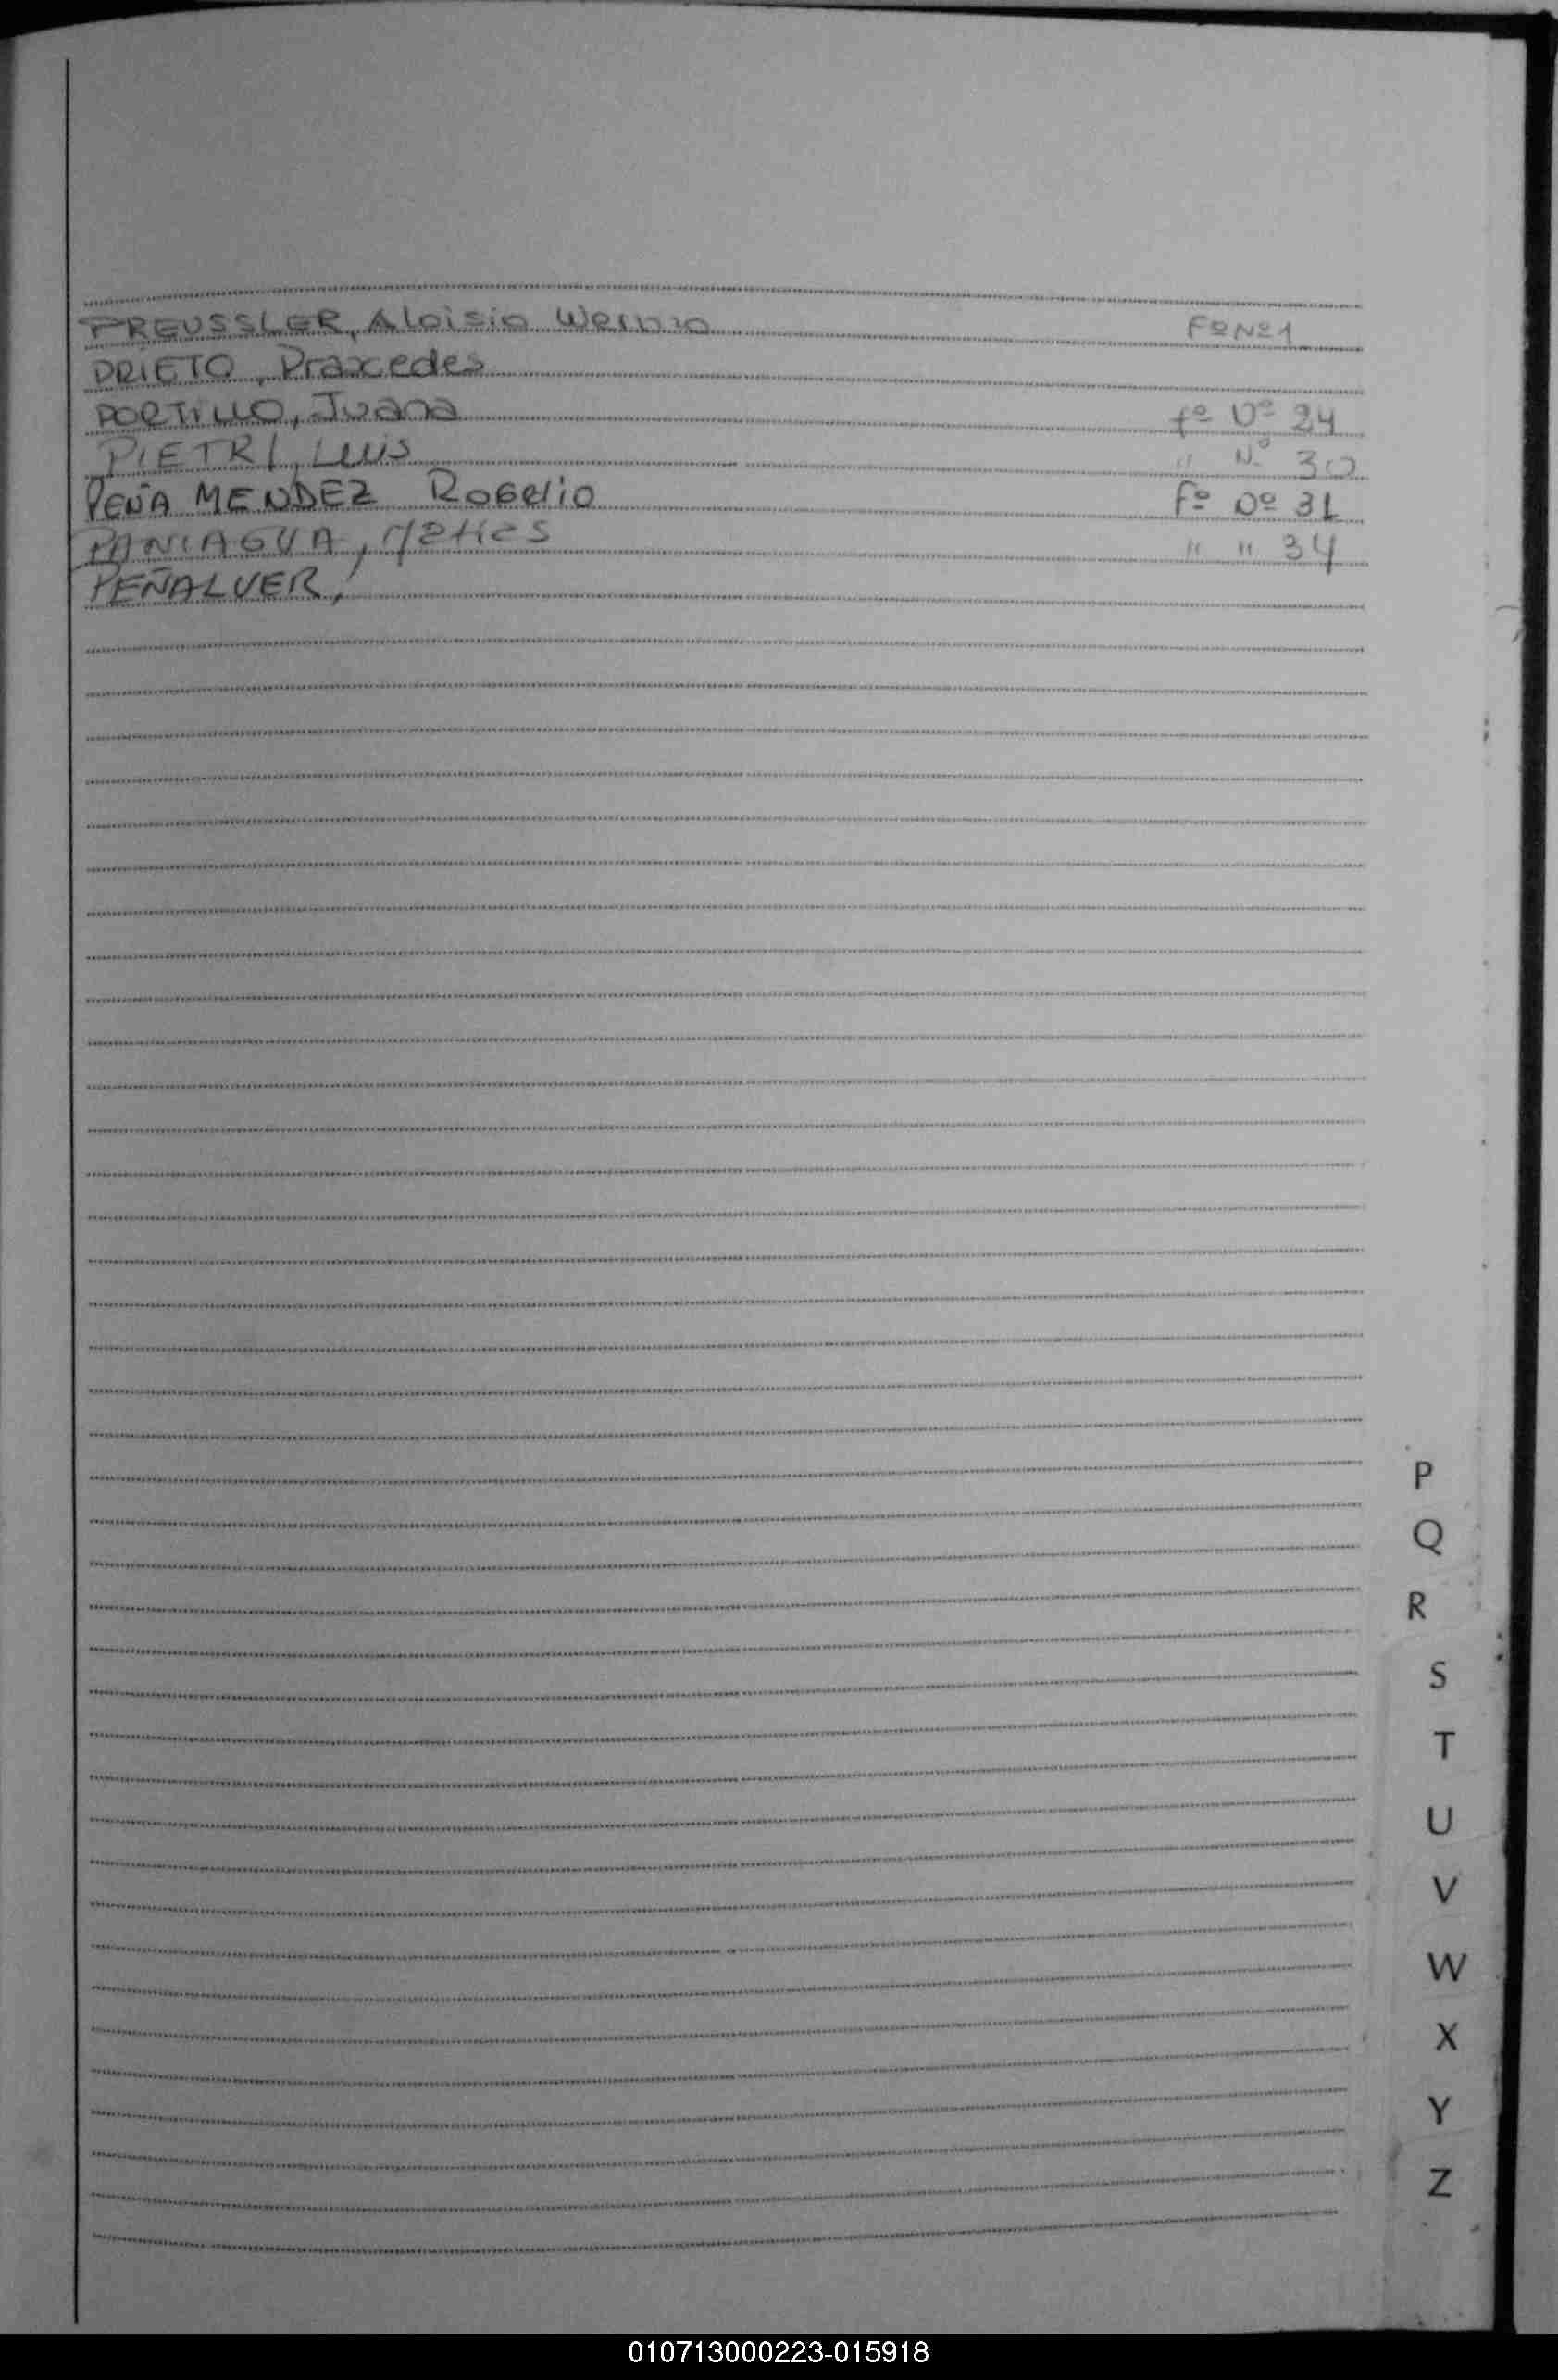 PREUSSLER, Aloisio Werno FºNº1
PRIETO, Praxedes
PORTILLO, Juana fº Nº 24
PIETRI, Luis " Nº 30
PEÑA MENDEZ Rogelio Fº Nº 31
PANIAGUA, Maties " " 34
PEÑALVER,
P
Q
R
S
T
U
V
W
X
Y
Z
010713000223-015918